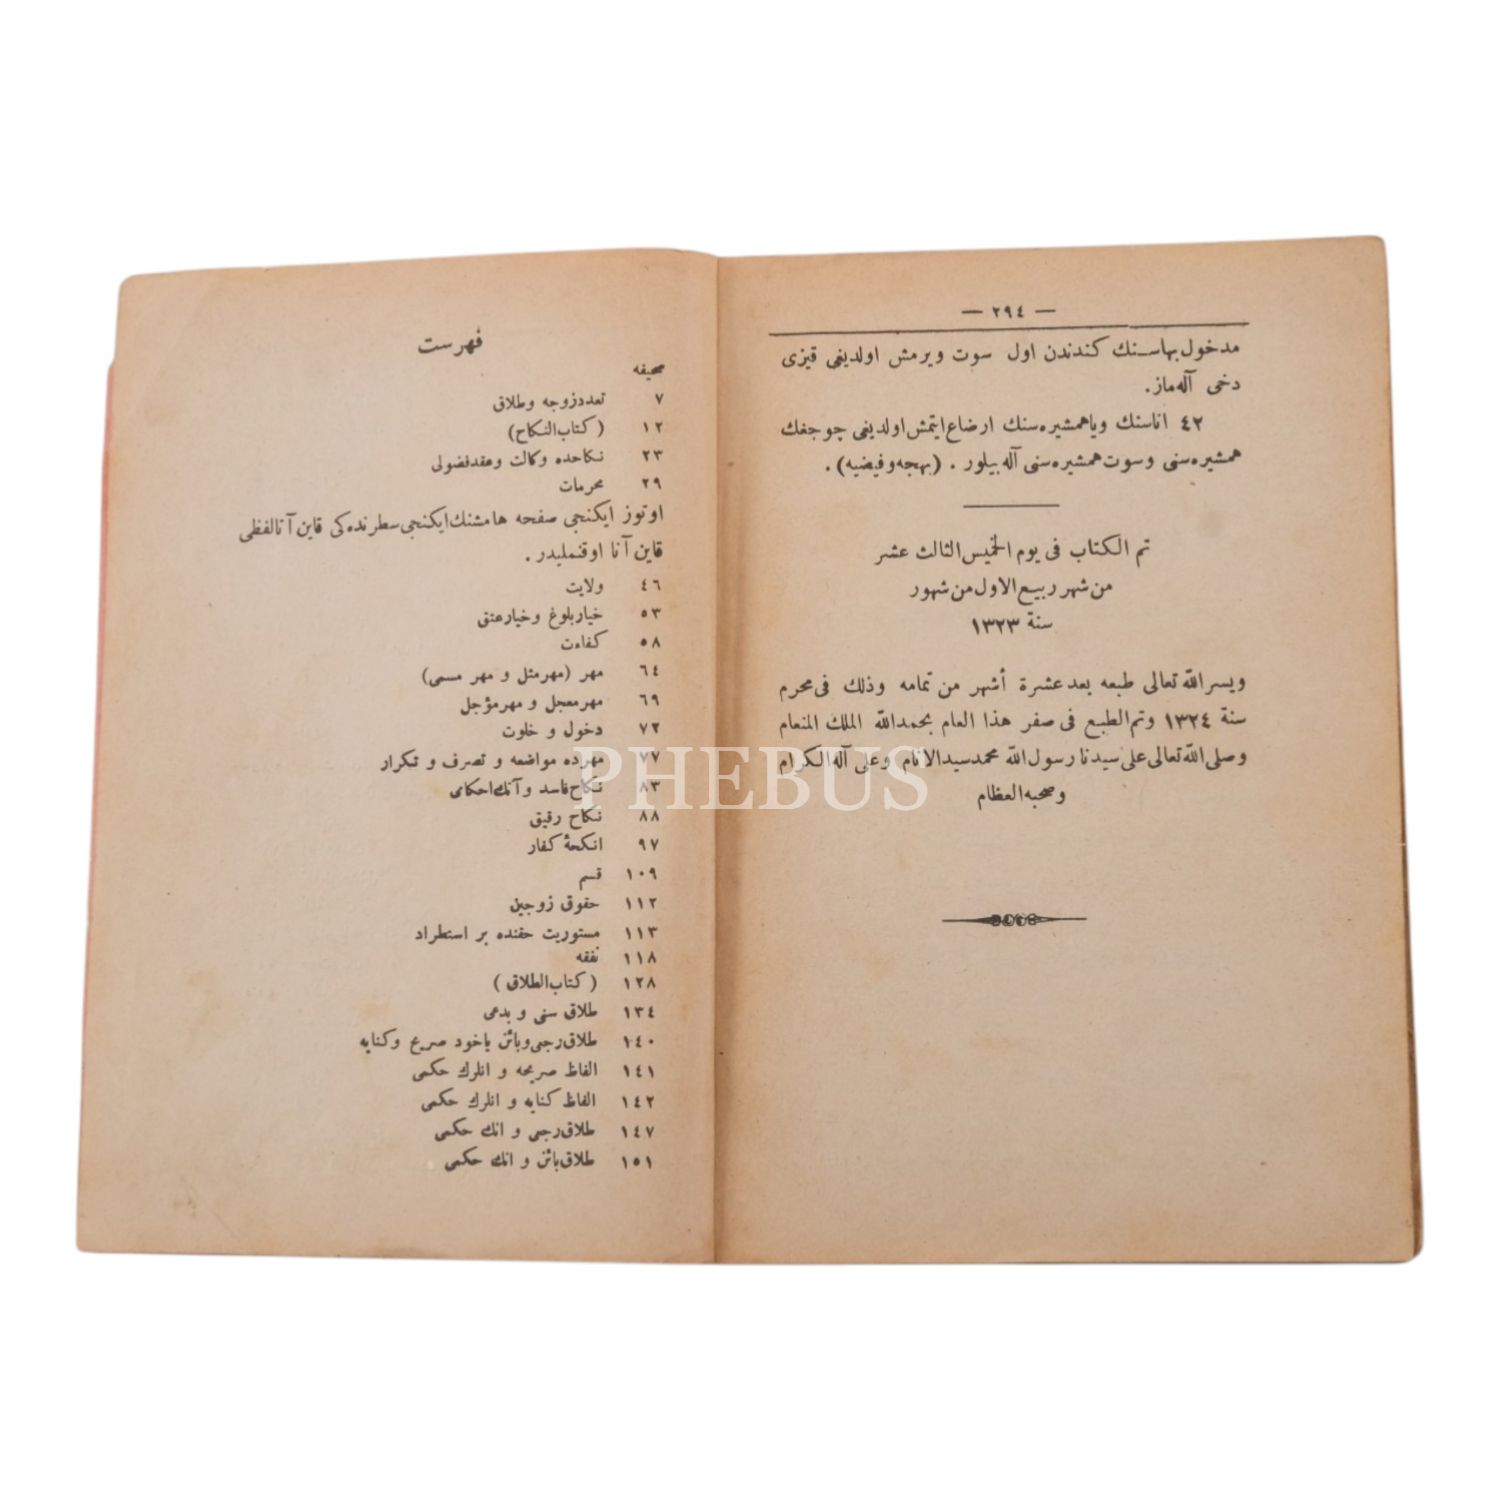 — ٢٩٤ —
مدخول بهاسنك كندندن اول سوت ويرمش اولديغى قيزى
دخى آله‌ماز.
٤٢ اناسنك ويا همشيره‌سنك ارضاع ايتمش اولديغى چوجغك
همشيره‌سنى و سوت همشيره‌سنى آله بيلور . (بهجه و فيضيه) .
تم الكتاب فى يوم الخميس الثالث عشر
من شهر ربيع الاول من شهور
سنة ١٣٢٣
ويسر الله تعالى طبعه بعد عشرة أشهر من تمامه وذلك فى محرم
سنة ١٣٢٤ وتم الطبع فى صفر هذا العام بحمد الله الملك المنعام
وصلى الله تعالى على سيدنا رسول الله محمد سيد الانام وعلى آله الكرام
وصحبه العظام
فهرست
صحيفه
٧ تعدد زوجه و طلاق
١٢ (كتاب النكاح)
٢٣ نكاحده وكالت و عقد فضولى
٢٩ محرمات
اوتوز ايكنجى صفحه هامشنك ايكنجى سطرنده‌كى قاين آتا لفظى
قاين آنا اوقنمليدر .
٤٦ ولايت
٥٣ خيار بلوغ و خيار عتق
٥٨ كفاءت
٦٤ مهر (مهر مثل و مهر مسمى)
٦٩ مهر معجل و مهر مؤجل
٧٢ دخول و خلوت
٧٧ مهرده مواضعه و تصرف و تكرار
٨٣ نكاح فاسد و آنك احكامى
٨٨ نكاح رقيق
٩٧ انكحۀ كفار
١٠٩ قسم
١١٢ حقوق زوجين
١١٣ مستوريت حقنده بر استطراد
١١٨ نفقه
١٢٨ (كتاب الطلاق)
١٣٤ طلاق سنى و بدعى
١٤٠ طلاق رجعى و بائن ياخود صريح و كنايه
١٤١ الفاظ صريحه و انلرك حكمى
١٤٢ الفاظ كنايه و انلرك حكمى
١٤٧ طلاق رجعى و انك حكمى
١٥١ طلاق بائن و انك حكمى
PHEBUS